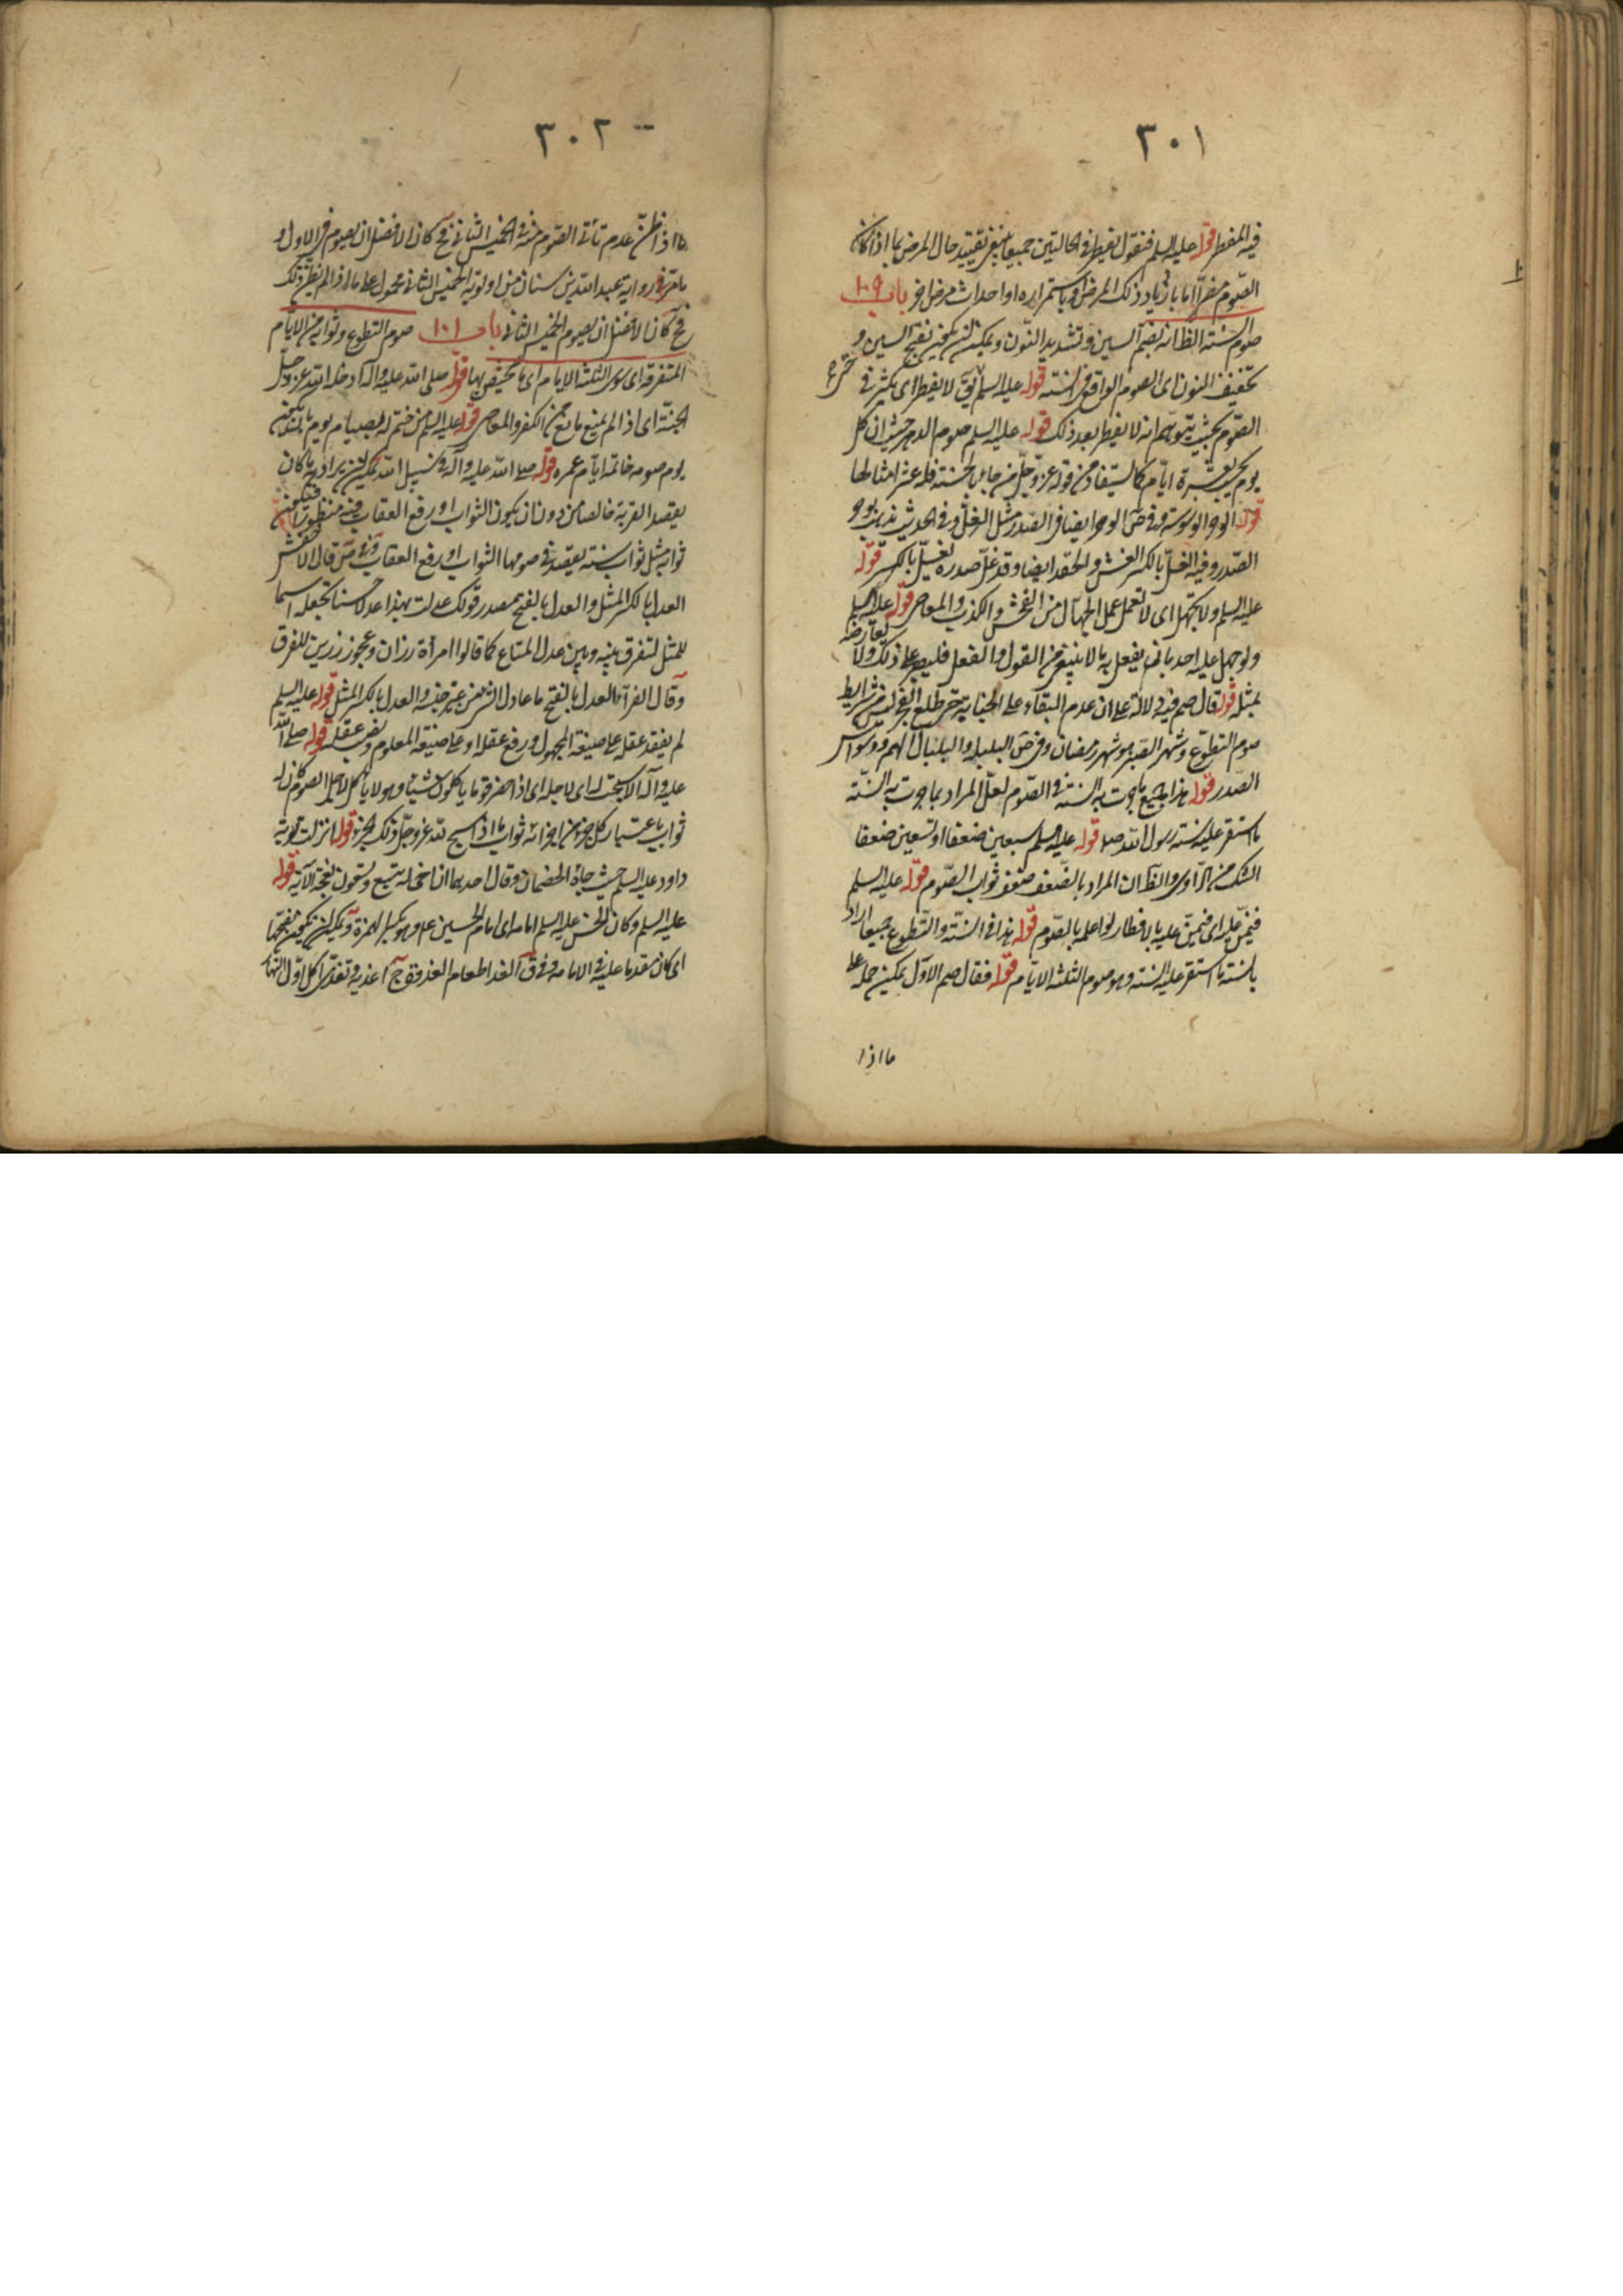 ٣٠١
فيه المفطر قوله عليه السلم فنقول يفطر في الحالتين جميعا ينبغي تقييد حال المرض بما اذا كان
الصوم مضرا اما بازدياد ذلك المرض او باستمراره او احداث مرض اخر باب ١٠٩
صوم السنة الظ انه بضم السين وتشديد النون ويمكن ان يكون بفتح السين و
تخفيف النون اى الصوم الواقع في السنة قوله عليه السلم لا يفطر اى يكثر في
الصوم بحيث يتوهم انه لا يفطر بعد ذلك قوله عليه السلم صوم الدهر حيث ان كل
يوم بعشرة ايام كما يستفاد من قوله عز وجل من جاء بالحسنة فله عشر امثالها
قوله الوحر الوسوسة وفي ص الوحر ايضا في الصدر مثل الغل وفي الحديث يذهب بوحر
الصدر وفيه الغل بالكسر الغش والحقد ايضا وقد غل صدره يغل بالكسر قوله
عليه السلم ولا يجهل اى لا تعمل عمل الجهال من الفحش والكذب والمعاصي قوله عليه السلم
ولو جهل عليه احد بان يفعل به ما لا ينبغي من القول والفعل فليصبر على ذلك ولا يعارضه
بمثله قوله قال صم فيه دلالة على ان عدم البقاء على الجنابة حتى طلع الفجر ليس من شرايط
صوم التطوع وشهر الصبر هو شهر رمضان وفي ص البلبلة والبلبال الهم ووسواس
الصدر قوله هذا جميع ما جرت به السنة في الصوم لعل المراد بما جرت به السنة
ما استقر عليه سنة رسول الله صلى قوله عليه السلم سبعين ضعفا او تسعين ضعفا
الشك من الراوى والظ ان المراد بالضعف ضعف ثواب الصوم قوله عليه السلم
فيمن عليه اى فيمن عليه بالافطار لو اعلمه بالصوم قوله هذا في السنة والتطوع جميعا اراد
بالسنة ما استقر عليه السنة وهو صوم الثلثة الايام قوله فقال صم الاول يمكن حمله على
ما اذا
٣٠٢
ما اذا ظن عدم تأتى الصوم منه في الخميس الثاني فح كان الافضل ان يصوم في الاول و
ما مر في رواية عبد الله بن سنان من اولوية الخميس الثاني محمول على ما اذا لم يظن ذلك
فح كان الافضل ان يصوم الخميس الثاني باب ١٠١ صوم التطوع وثوابه من الايام
المتفرقة اى سوى الثلثة الايام اى ما يختص بها قوله صلى الله عليه وآله ادخله الله عز وجل
الجنة اى اذا لم يمنع مانع من الكفر والمعاصي قوله عليه السلم من ختم له بصيام يوم بان يكون
يوم صومه خاتمة ايام عمره قوله صلى الله عليه وآله في سبيل الله يمكن ان يراد به ما كان
بقصد القربة خالصا من دون ان يكون الثواب او رفع العقاب فيه منظورا فيكون
ثوابه مثل ثواب سنة يقصد في صومها الثواب او رفع العقاب وفي ص قال الاخفش
العدل بالكسر المثل والعدل بالفتح مصدر قولك عدلت بهذا عدلا حسنا تجعله اسما
للمثل لتفرق بينه وبين عدل المتاع كما قالوا امرأة رزان وعجوز رزين للفرق
وقال الفراء العدل بالفتح ما عادل الشئ من غير جنسه والعدل بالكسر المثل قوله عليه السلم
لم يفقد عقله على صيغة المجهول ورفع عقله او على صيغة المعلوم ونصب عقله قوله صلى الله
عليه وآله الا سبحت له اى لاجله اى اذا حضر قوما ياكلون شيئا وهو لا ياكل لاجل الصوم كان له
ثواب باعتبار كل جزء من اجزائه ثواب ما اذا سبح لله عز وجل ذلك الجزء قوله انزلت توبة
داود عليه السلم حيث جاءه الخصمان وقال احدهما ان اخي له تسع وتسعون نعجة الآية قوله
عليه السلم وكان الحسن عليه السلم امامه اى امام الحسين ع وهو بكسر الهمزة ويمكن ان يكون بفتحها
اى كان مقدما عليه في الامامة وفي ق الغداء طعام الغدوة ج اغدية وتغدى اكل اول النهار